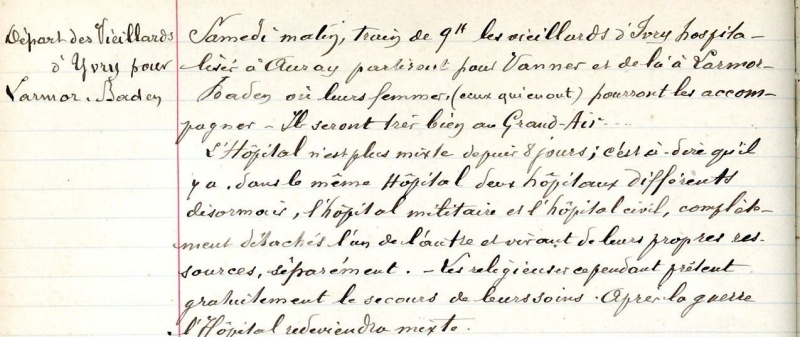 Départ des Vieillards
d'Yvry pour
Larmor-Baden
Samedi matin, train de 9h les vieillards d'Ivry hospita-
lisés à Auray partiront pour Vannes et de là à Larmor-
Baden où leurs femmes, (ceux qui en ont) pourront les accom-
pagner - Ils seront très bien au Grand-Air...
L'Hôpital n'est plus mixte depuis 8 jours; c'est-à-dire qu'il
y a dans le même Hôpital deux hôpitaux différents
désormais, l'hôpital militaire et l'hôpital civil, complète-
ment détachés l'un de l'autre et vivant de leurs propres res-
sources, séparément. - Les religieuses cependant prêtent
gratuitement le secours de leurs soins. Après la guerre
l'Hôpital redeviendra mixte.